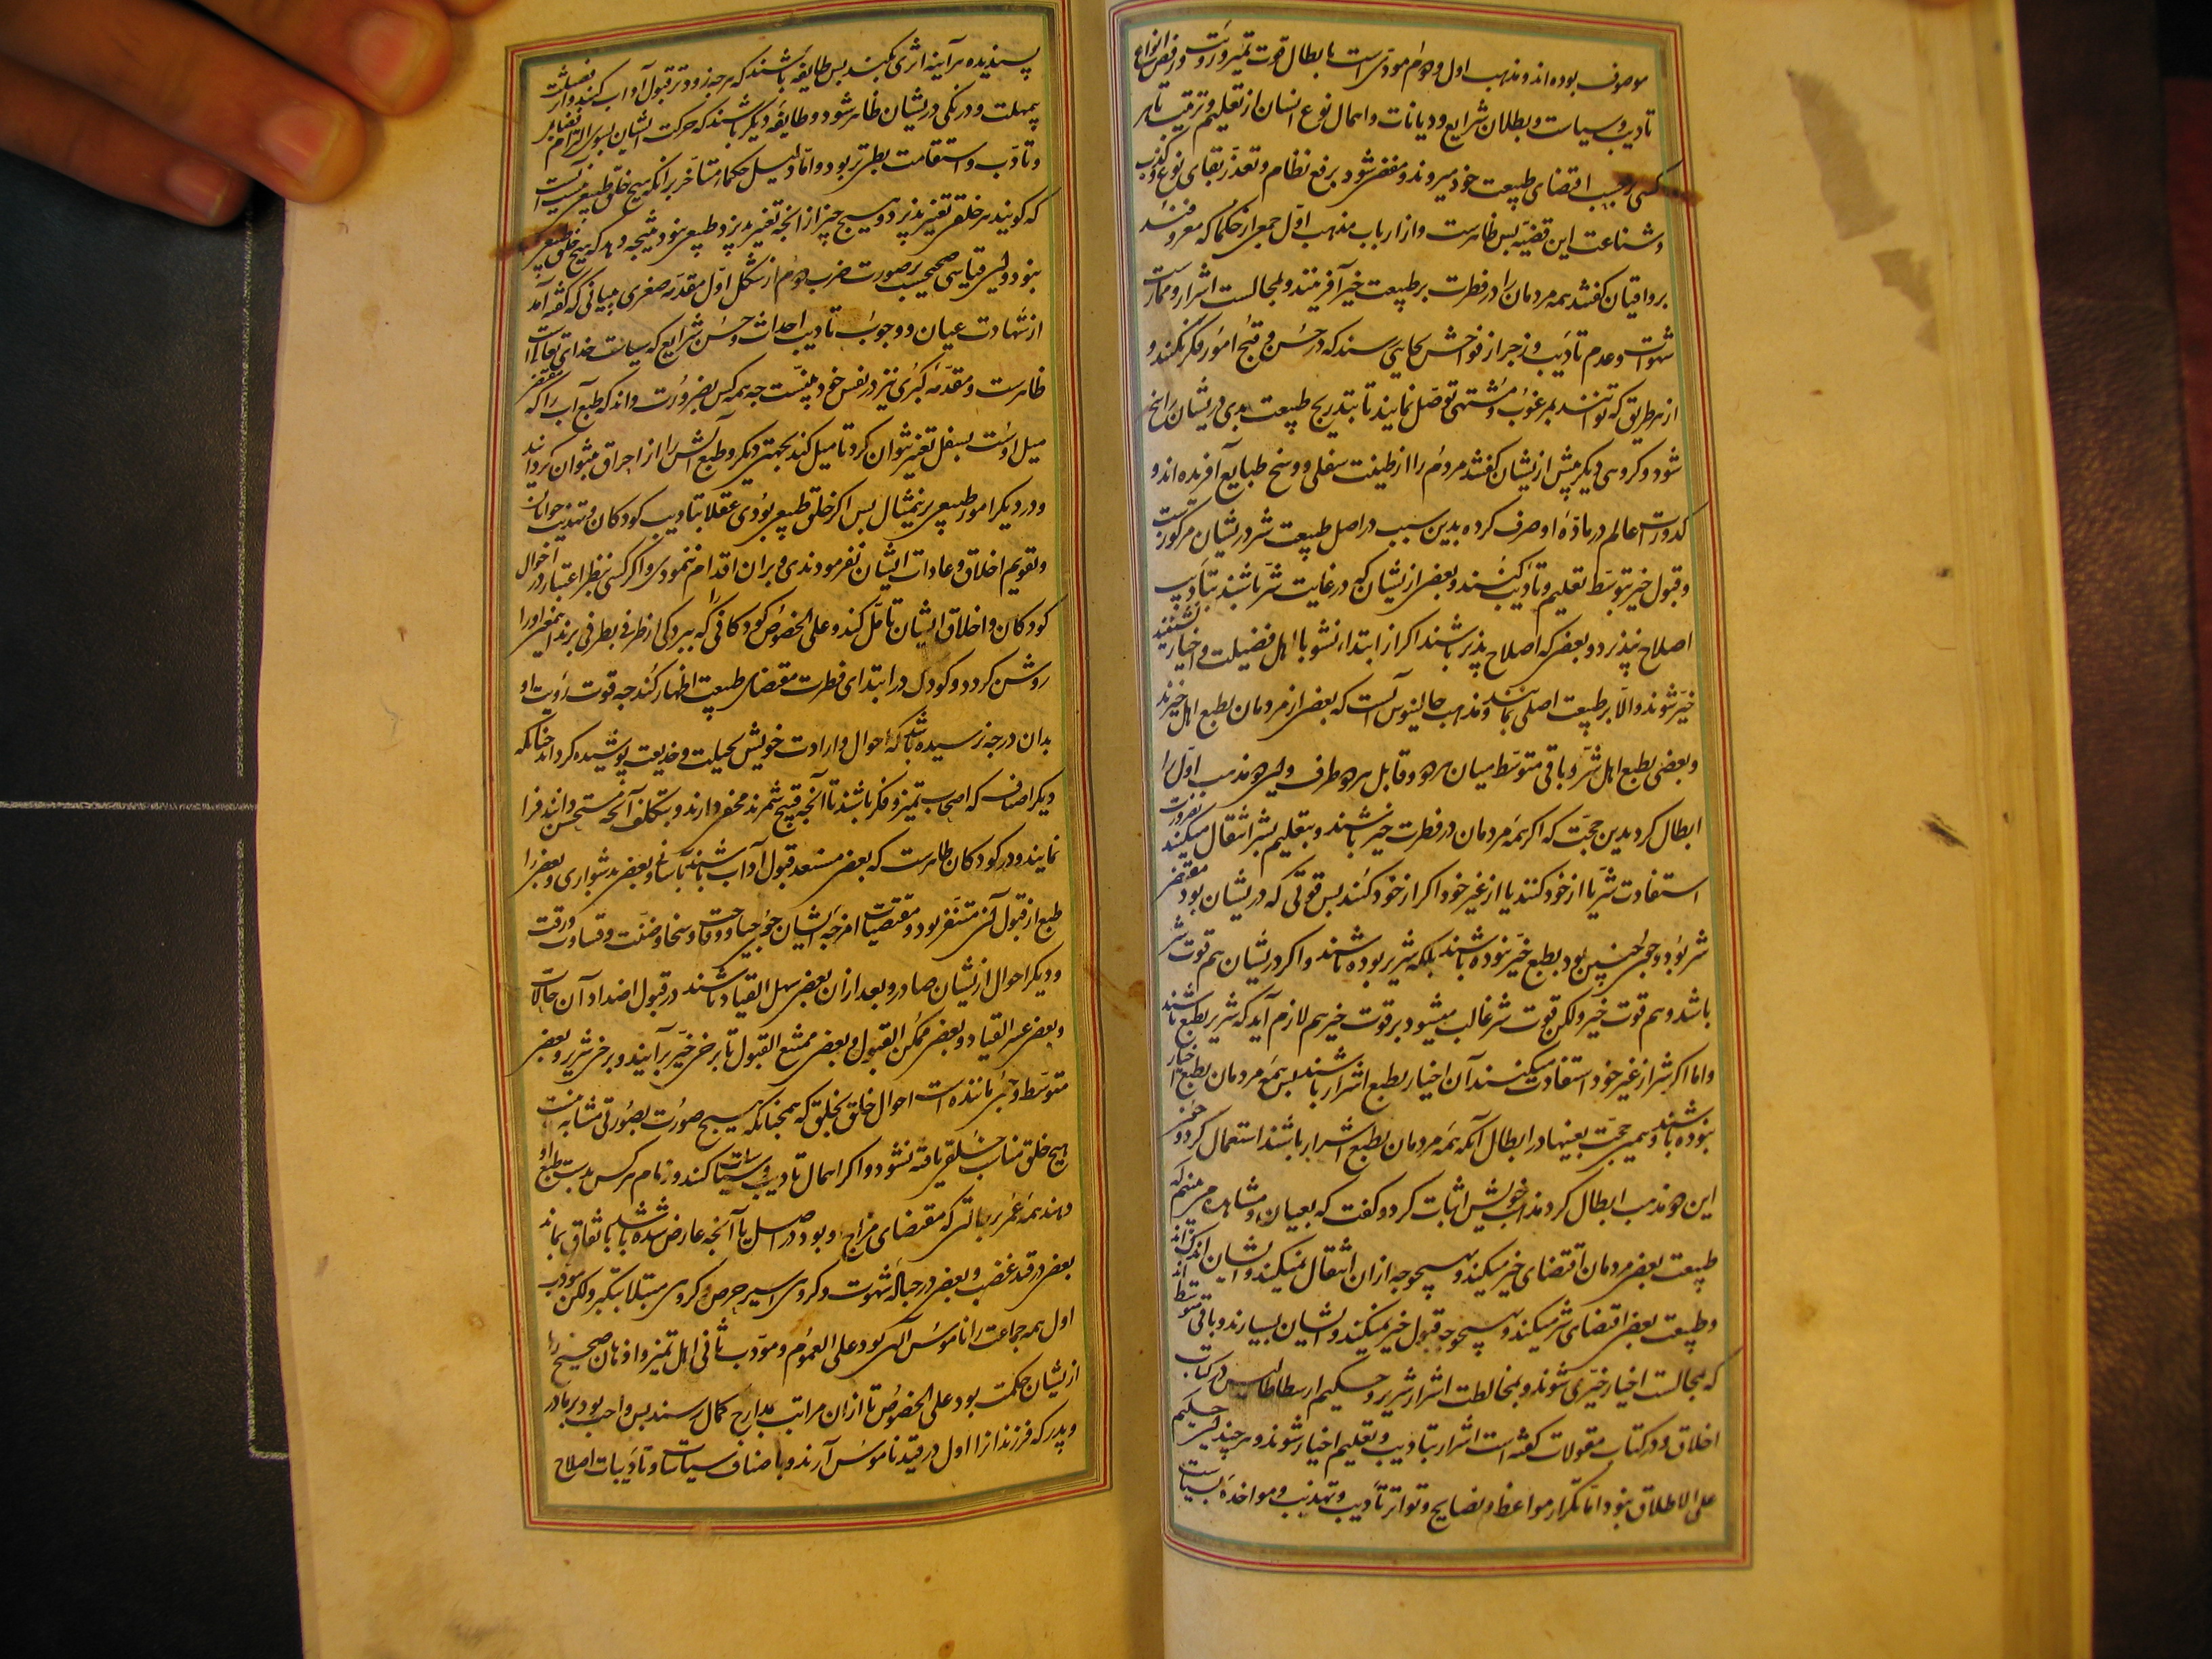 موصوف بوده‌اند و مذهب اول و دوم مودی است با بطال قوت تمیز و رویت و رفض انواع
تادیب و سیاست و بطلان شرایع و دیانات و اهمال نوع انسان از تعلیم و تربیت تا هر
کسی بر حسب اقتضای طبیعت خود میروند و مفضی شود برفع نظام و تعذر بقای نوع و کذب
و شناعت این قضیه بس ظاهرست و از ارباب مذهب اول جمعی از حکما که معروفند
برواقیان گفتند همه مردمان را در فطرت بر طبیعت خیر آفریدند و بمجالست اشرار و ممارست
شهوات و عدم تادیب و زجر از فواحش بجایی رسند که در حسن و قبح امور فکر نکنند و
از هر طریق که توانند بمرغوب و مشتهی توصل نمایند تا بتدریج طبیعت بدی دریشان راسخ
شود و گروهی دیگر پیش ازیشان گفتند مردم را از طینت سفلی و وسخ طبایع آفریده‌اند و
کدورت عالم در ماده او صرف کرده بدین سبب در اصل طبیعت شر دریشان مرکوزست
و قبول خیر بتوسط تعلیم و تادیب کنند و بعضی ازیشان که در غایت شر باشند بتادیب
اصلاح نپذیرد و بعضی که اصلاح پذیر باشند اگر از ابتداء نشو با اهل فضیلت و اخیار نشینند
خیر شوند والا بر طبیعت اصلی بمانند و مذهب جالینوس آنست که بعضی از مردمان بطبع اهل خیرند
و بعضی بطبع اهل شر و باقی متوسط میان هر دو و قابل هر دو طرف و این مذهب اول را
ابطال کرد بدین حجت که اگر همه مردمان در فطرت خیر باشند و بتعلیم بشر انتقال میکنند بضرورت
استفادت شر یا از خود کنند یا از غیر خود اگر از خود کنند بس قوتی که دریشان بود مقتضی
شر بود و چون چنین بود بطبع خیر نبوده باشند بلکه شریر بوده باشند و اگر دریشان هم قوت شر
باشد و هم قوت خیر ولکن قوت شر غالب میشود بر قوت خیر هم لازم آید که شریر بطبع باشند
و اما اگر شر از غیر خود استفادت میکنند آن اخیار بطبع اشرار باشند بس همه مردمان بطبع اخیار
نبوده باشند و همین حجت بعینها در ابطال آنکه همه مردمان بطبع اشرار باشند استعمال کرد و چون
این دو مذهب ابطال کرد مذهب خویش اثبات کرد و گفت که بعیان و مشاهده می‌بینیم که
طبیعت بعضی مردمان اقتضای خیر میکند و بهیچوجه از ان انتقال نمیکنند و ایشان اندک‌اند
و طبیعت بعضی اقتضای شر میکند و بهیچوجه قبول خیر نمیکنند و ایشان بسیارند و باقی متوسط اند
که بمجالست اخیار خیر می‌شوند و بمخالطت اشرار شریر و حکیم ارسطاطالیس در کتاب
اخلاق و در کتاب مقولات گفته است اشرار بتادیب و تعلیم اخیار شوند و هر چند این حکیم
علی الاطلاق نبود اما تکرار مواعظ و نصایح و تواتر تادیب و تهذیب و مواخذه بسیاست
پسندیده هر آینه اثری بکند بس طایفه باشند که هر چه زودتر قبول آداب کنند و اثر فضیلت
بیمهلت و درنگی دریشان ظاهر شود و طایفه دیگر باشند که حرکت ایشان بسوی التزام فضایل
و تادب و استقامت بطی‌تر بود و اما دلیل حکماء متاخر بر آنکه هیچ خلق طبیعی نیست آنست
که گویند هر خلقی تغیر پذیرد و هیچ چیز از انچه تغیر پذیرد طبیعی نبود نتیجه دهد که هیچ خلق طبیعی
نبود و این قیاسی صحیحست بر صورت ضرب دوم از شکل اول مقدمه صغری ببیانی که گفته آمد
از شهادت عیان و وجوب تادیب احداث و حسن شرایع که سیاست خدای تعالی است
ظاهرست و مقدمه کبری نیز در نفس خود بینست چه همه کس بضرورت داند که طبع آب را که مقتضی
میل اوست بسفل تغیر نتوان کرد تا میل کند بجهتی دیگر و طبع آتش را از احراق نتوان گردانید
و در دیگر امور طبیعی برین‌مثال بس اگر خلق طبیعی بودی عقلا بتادیب کودکان و تهذیب جوانان
و تقویم اخلاق و عادات ایشان نفرمودندی و بران اقدام ننمودی و اگر کسی بنظر اعتبار در احوال
کودکان و اخلاق ایشان تامل کند و علی الخصوص کودکانی را که ببردگی از طرفی بطرفی برند این معنی او را
روشن گردد و کودک در ابتدای فطرت مقتضای طبیعت اظهار کند چه قوت رویت او
بدان درجه نرسیده باشد که احوال و ارادت خویش بحیلت و خدیعت پوشیده گرداند چنانکه
دیگر اصناف که اصحاب تمیز و فکر باشند تا آنچه قبیح شمرند مخفی دارند و بتکلف آنچه مستحسن دانند فرا
نمایند و در کودکان ظاهرست که بعضی مستعد قبول آداب باشند بآسانی و بعضی بدشواری و بعضی را
طبع از قبول آن متنفر بود و مقتضیات امزجه ایشان چون حیا و وقاحت و سخا و ضنت و قساوت و رقت
و دیگر احوال ازیشان صادر و بعد از ان بعضی سهل القیاد باشند در قبول اضداد آن حالات
و بعضی عسر القیاد و بعضی ممکن القبول و بعضی ممتنع القبول تا برخی خیر برآیند و برخی شریر و بعضی
متوسط و چه مانند است احوال خلق بخلق که همچنانکه هیچ صورت بصورتی مشابه نیست
هیچ خلق مناسب خلقی یافته نشود و اگر اهمال تادیب و سیاسات کنند و زمام هر کس بدست طبع او
دهند همه عمر بر حالتی که مقتضای مزاج او بود در اصل یا آنچه عارض شده باشد باتفاق بماند
بعضی در قید غضب و بعضی در حباله شهوت و گروهی اسیر حرص و گروهی مبتلا بتکبر ولکن مودب
اول همه جماعت را ناموس الهی بود علی العموم و مودب ثانی اهل تمیز و اذهان صحیح را
ازیشان حکمت بود علی الخصوص تا از ان مراتب بمدارج کمال رسند بس واجب بود بر مادر
و پدر که فرزندان را اول در قید ناموس آرند و باصناف سیاسات و تادیبات اصلاح